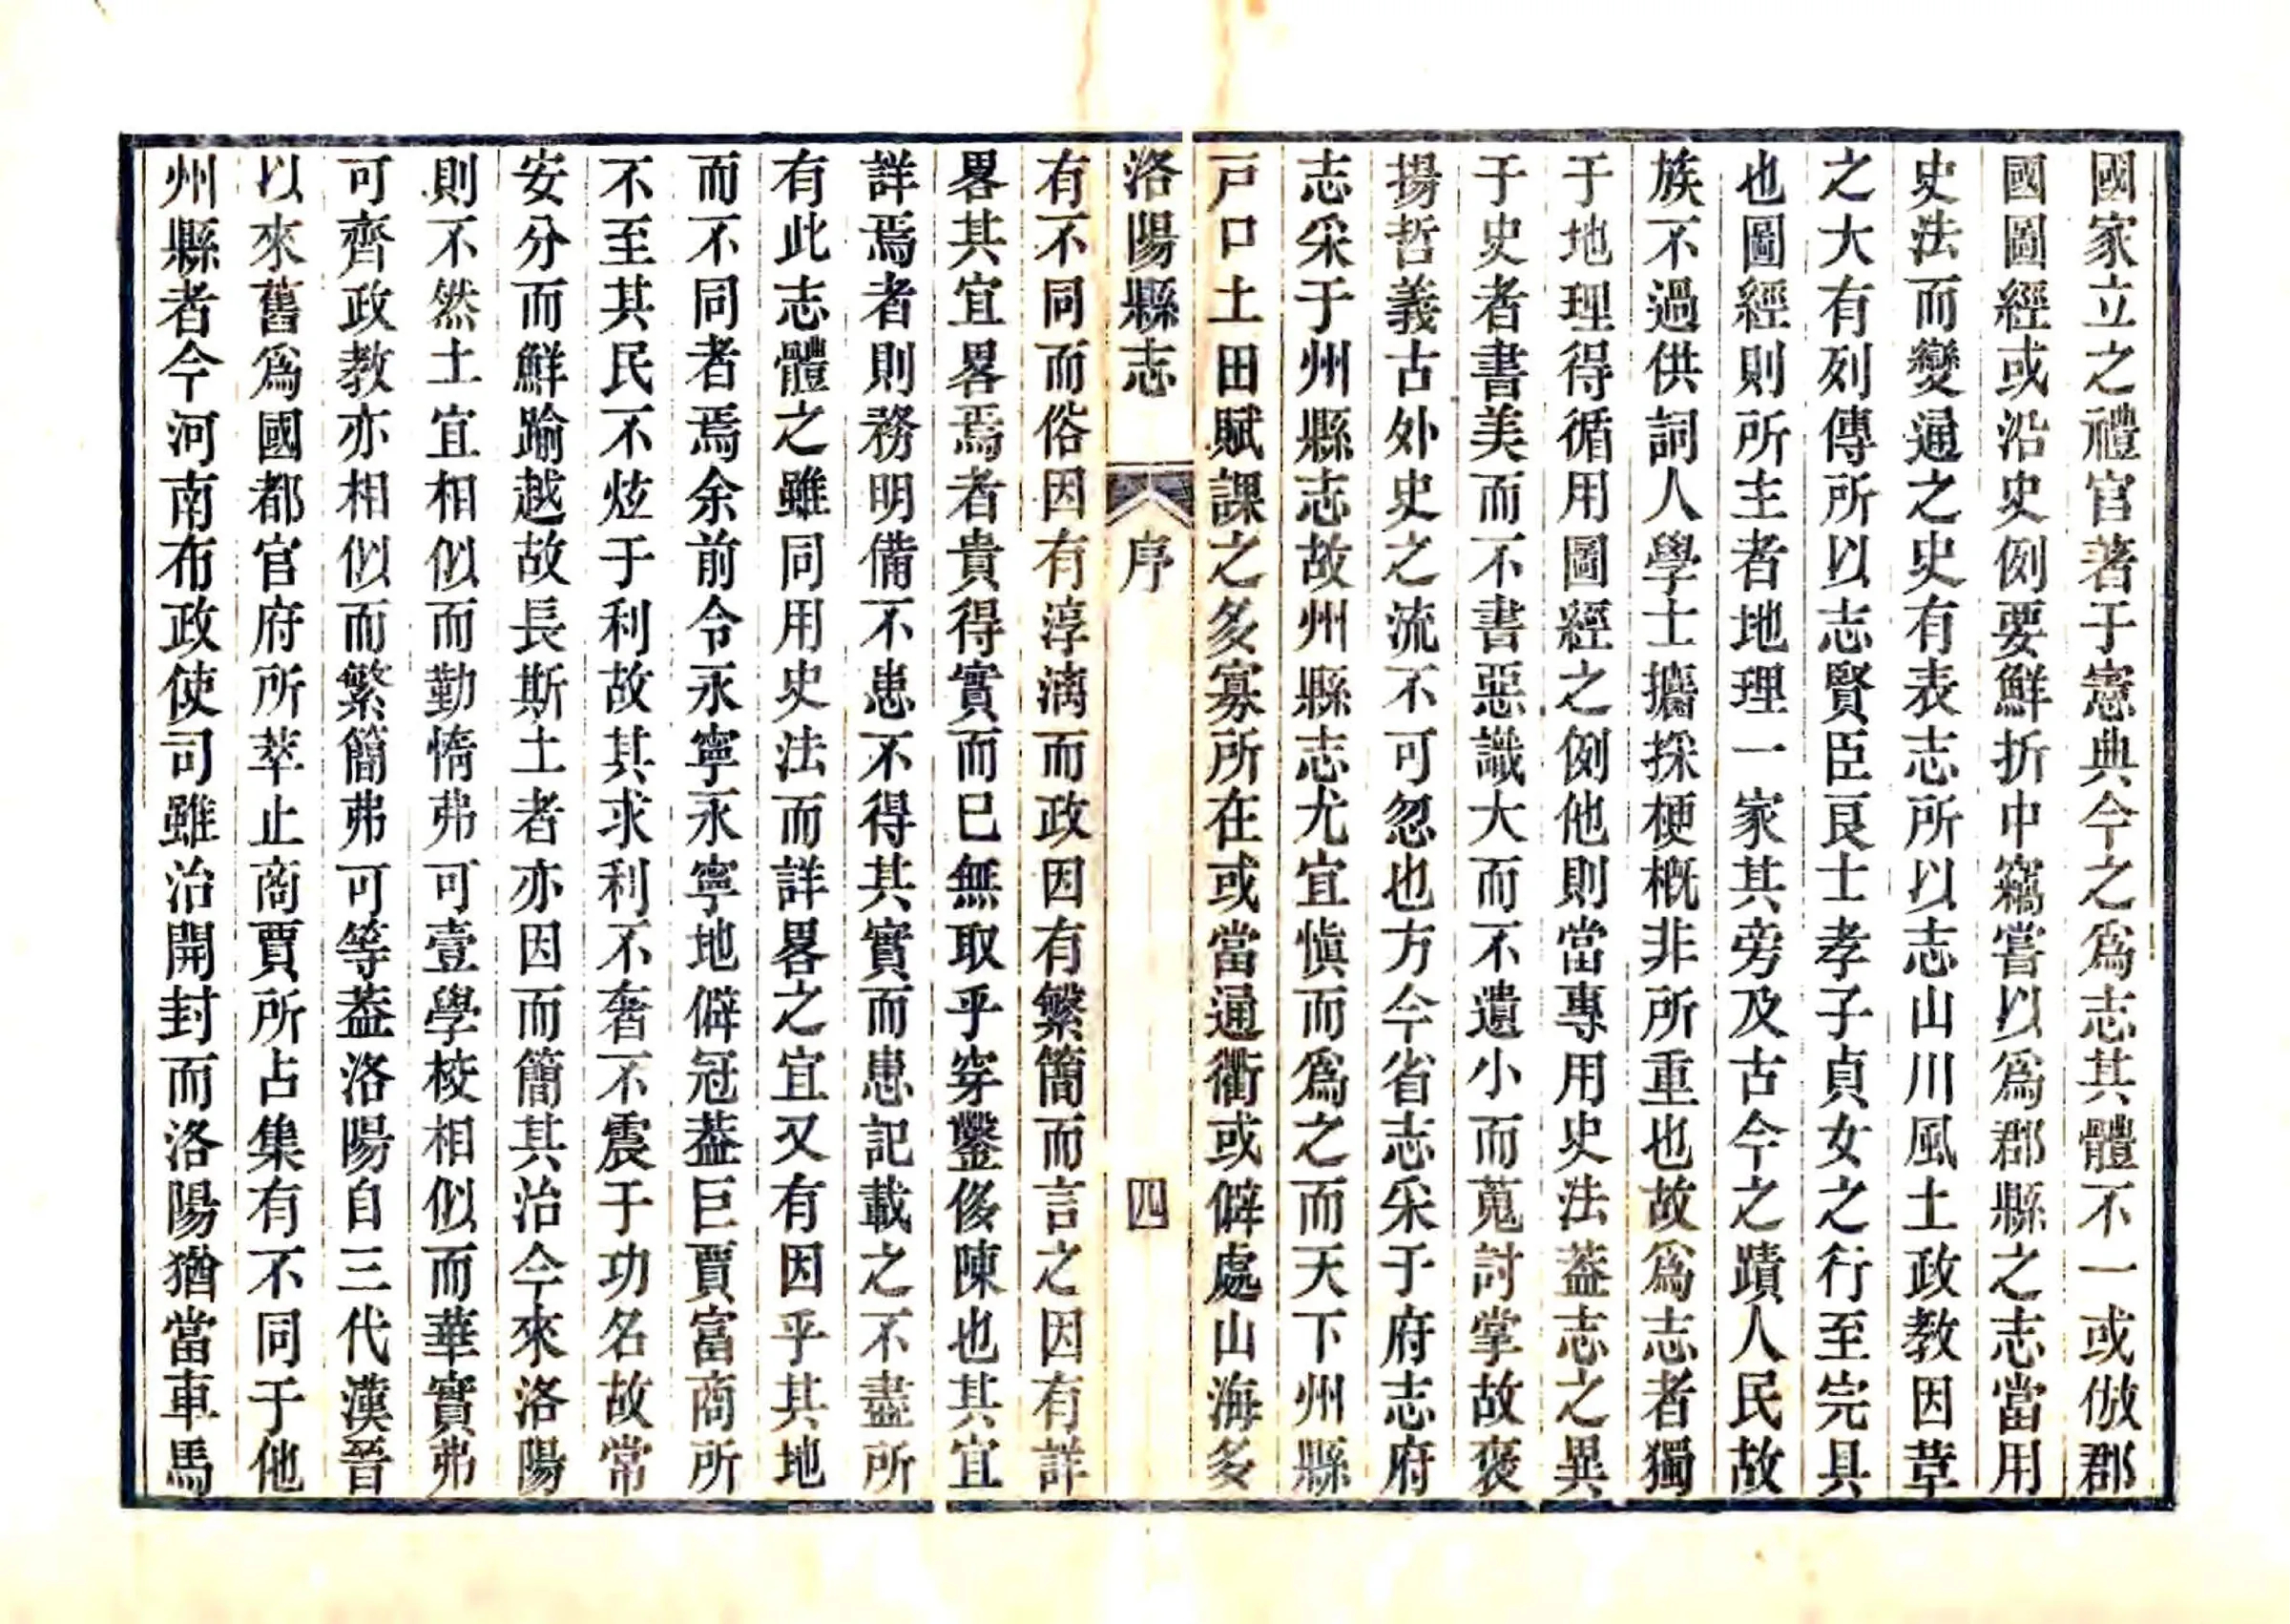 國家立之禮官著于憲典今之爲志其體不一或倣郡
國圖經或沿史例要鮮折中竊嘗以爲郡縣之志當用
史法而變通之史有表志所以志山川風土政教因革
之大有列傳所以志賢臣良士孝子貞女之行至完具
也圖經則所主者地理一家其旁及古今之蹟人民故
族不過供詞人學士攟採梗概非所重也故爲志者獨
于地理得循用圖經之例他則當專用史法葢志之異
于史者書美而不書惡識大而不遺小而蒐討掌故褒
揚哲義古外史之流不可忽也方今省志采于府志府
志采于州縣志故州縣志尤宜愼而爲之而天下州縣
戸口土田賦課之多寡所在或當通衢或僻處山海多
洛陽縣志 序 四
有不同而俗因有淳漓而政因有繁簡而言之因有詳
畧其宜畧焉者貴得實而已無取乎穿鑿侈陳也其宜
詳焉者則務明備不患不得其實而患記載之不盡所
有此志體之雖同用史法而詳畧之宜又有因乎其地
而不同者焉余前令永寧永寧地僻冠葢巨賈富商所
不至其民不炫于利故其求利不奢不震于功名故常
安分而鮮踰越故長斯土者亦因而簡其治今來洛陽
則不然土宜相似而勤惰弗可壹學校相似而華實弗
可齊政教亦相似而繁簡弗可等葢洛陽自三代漢晉
以來舊爲國都官府所萃止商賈所占集有不同于他
州縣者今河南布政使司雖治開封而洛陽猶當車馬